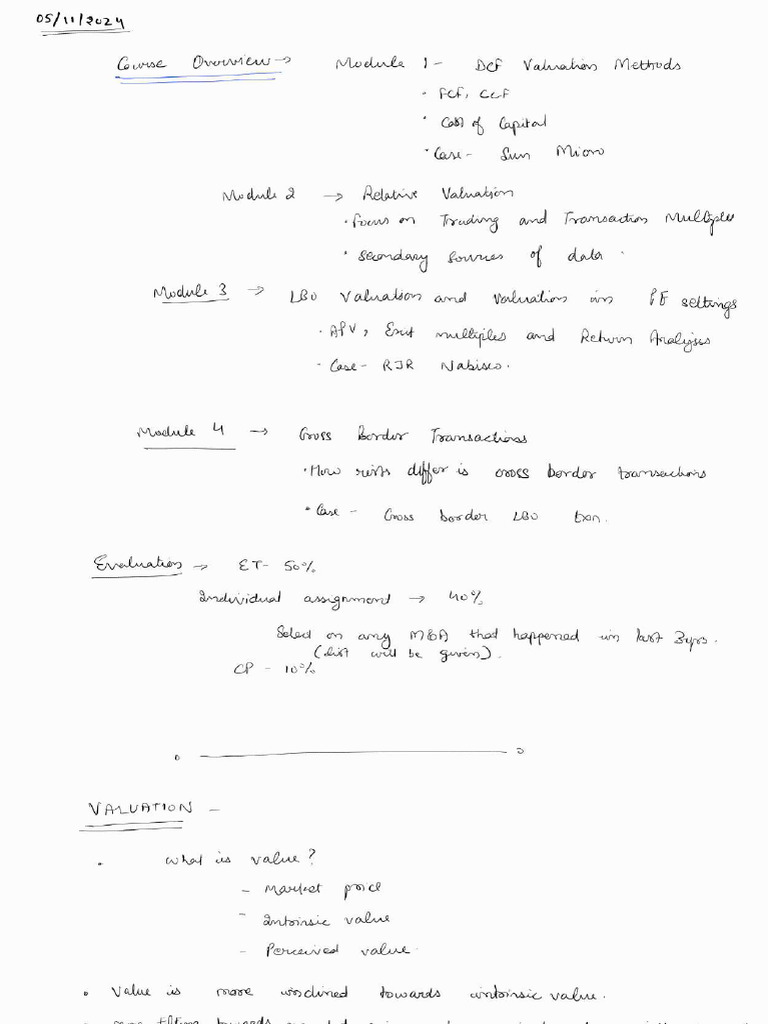 05/11/2024
Course Overview → Module 1 - DCF Valuation Methods
· FCF, CCF
· Cost of Capital
· Case - Sun Micro
Module 2 → Relative Valuation
· Focus on Trading and Transaction Multiples
· Secondary Sources of data.
Module 3 → LBO Valuation and Valuation in PE settings
· APV, Exit multiples and Return Analysis
· Case - RJR Nabisco.
Module 4 → Cross Border Transactions
· How risks differ is cross border transactions
· Case - Cross border LBO txn.
Evaluation → ET - 50%
Individual assignment → 40%
Select on any M&A that happened in last 3yrs.
(list will be given).
CP - 10%
VALUATION -
· What is value?
- Market price
- Intrinsic value
- Perceived value.
· Value is more inclined towards intrinsic value.